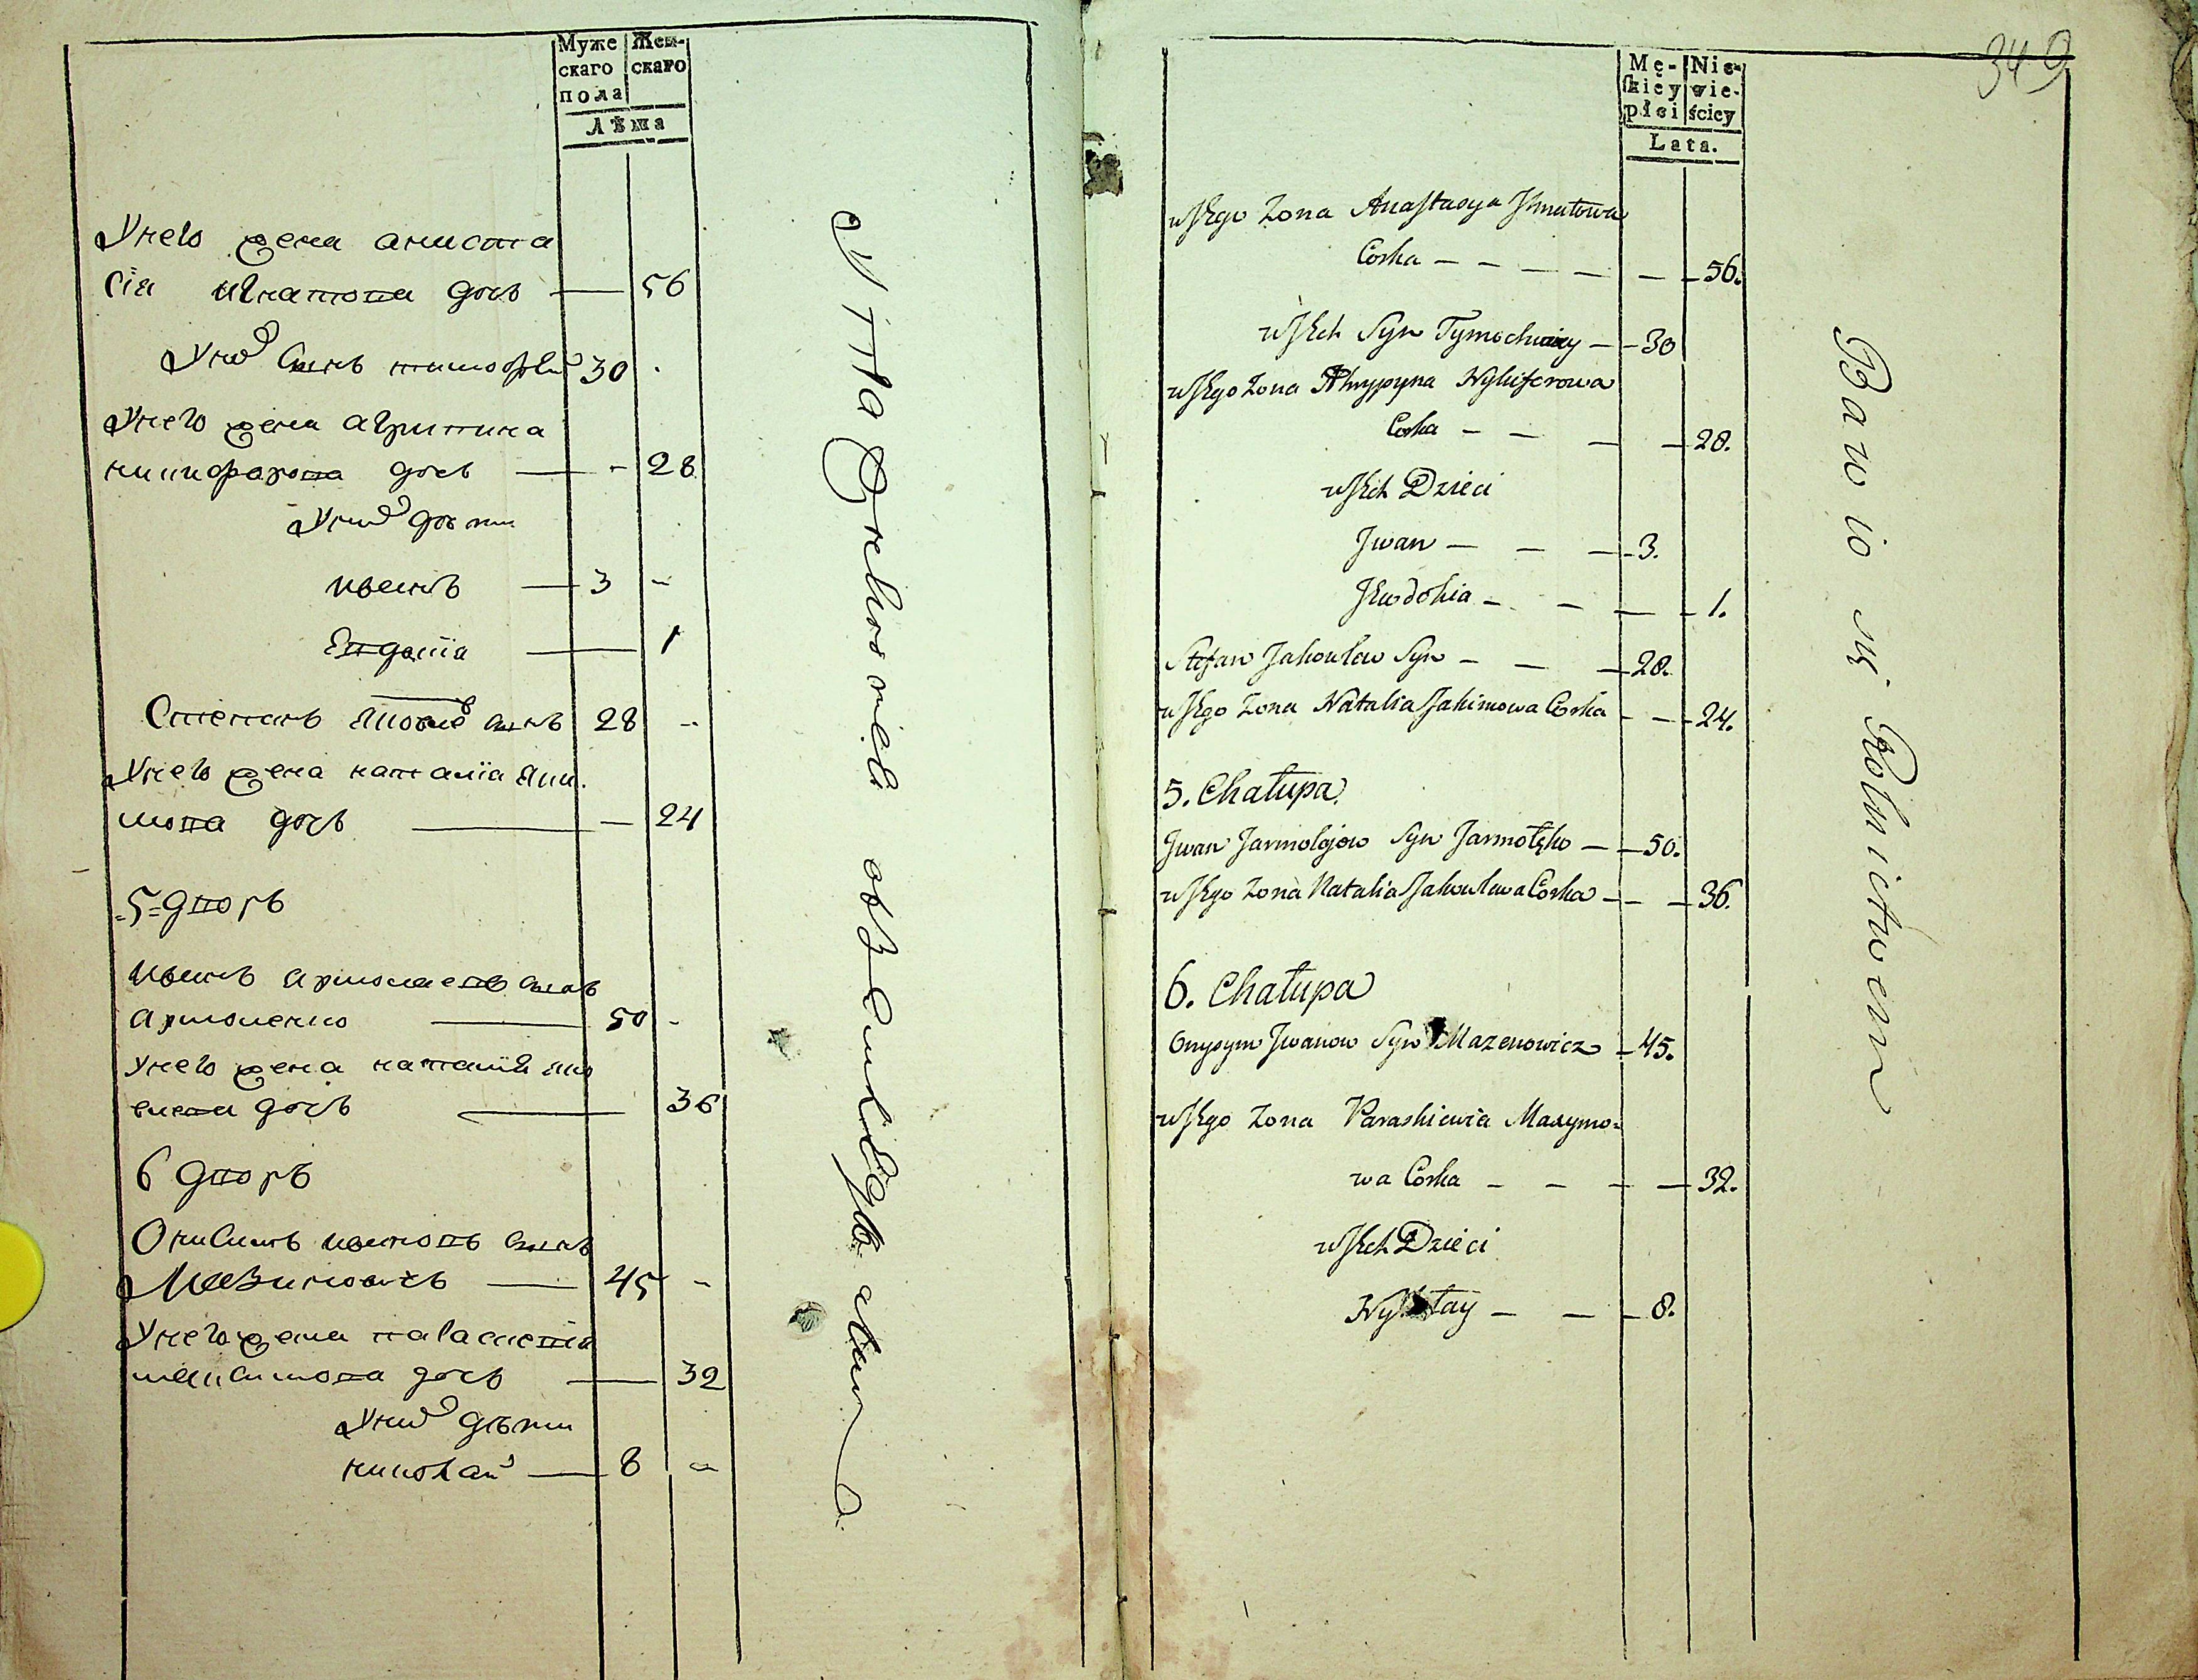 Муже Жен-
скаго скаго
пола
Лѣта
У него жена анаста
сія игнатова дочь — 56
У них сынъ тимофей 30
У него жена агрипина
никифарова дочь — - 28
У них дѣти
иванъ — 3 -
Евдокіа — 1
Степанъ яковлев сынъ 28 -
У него жена наталіа яки
мова дочь — 24
5 дворъ
иванъ армолаевъ сынъ
армоленко — 50 -
У него жена наталіа яко
влева дочь — 36
6 дворъ
Онисимъ ивановъ сынъ
Мазиновичъ — 45 -
У него жена параскевіа
максимова дочь — 32
У них дѣти
николай — 8 -
349
Mę- Nie-
skiey wie-
płci ściey
Lata.
u Jego Zona Anastasya Jhnatowa
Corka — 56.
u Jch Syn Tymochwiey — 30
u Jego Zona Ahrypyna Nykiferowa
Corka — 28.
u Jch Dzieci
Jwan — 3.
Jewdokia — 1.
Stefan Jakowlew Syn — 28.
u Jego Zona Natalia Jakimowa Corka — 24.
5. Chałupa
Jwan Jarmolajow Syn Jarmołęko — 50.
u Jego Zona Natalia Jakowlewa Corka — 36.
6. Chałupa
Onysym Jwanow Syn Mazenowicz — 45.
u Jego Zona Paraskiewia Maxymo-
wa Corka — 32.
u Jch Dzieci
— 8.
Bawio się Rolnictwem